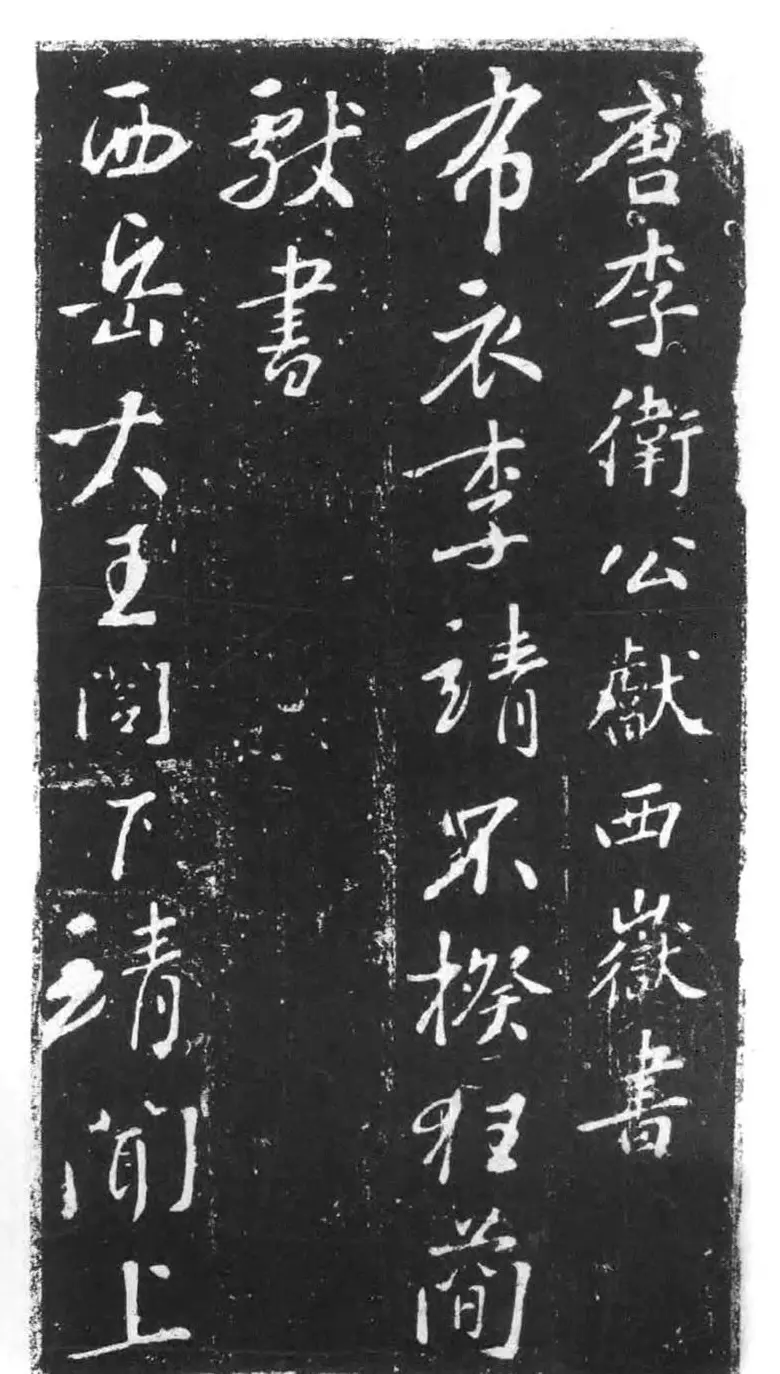 唐李衛公獻西嶽書
布衣李靖不揆狂蕳
献書
西岳大王閤下靖聞上